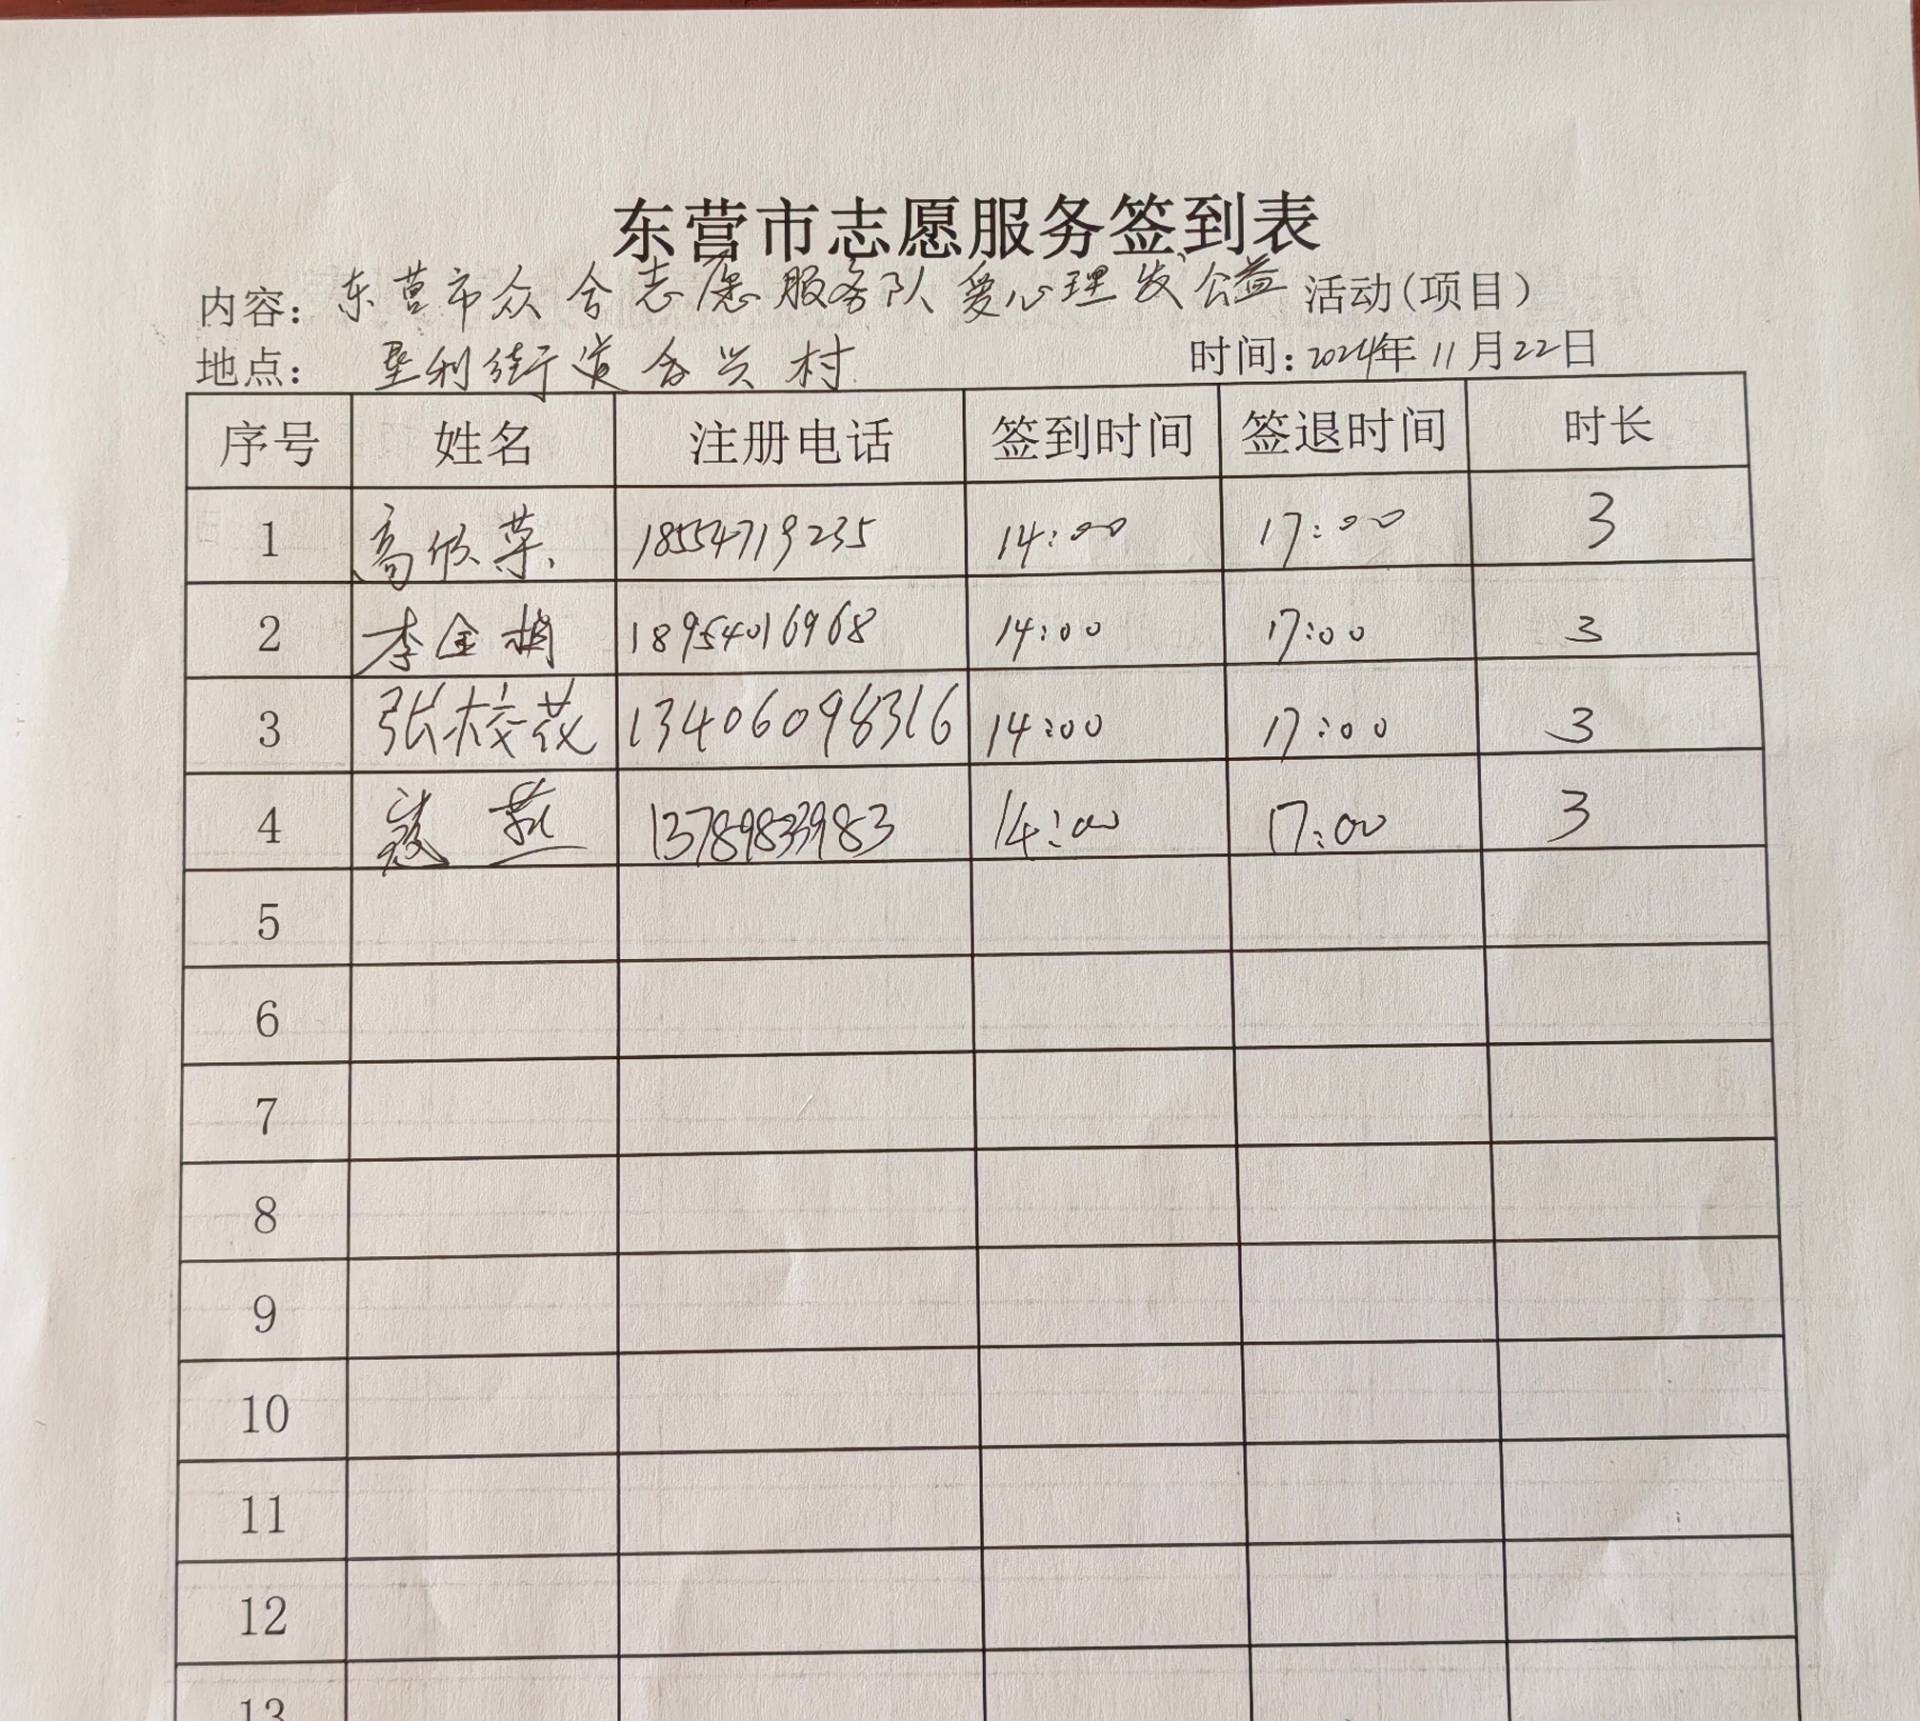 东营市志愿服务签到表
内容：东营市众合志愿服务队爱心理发公益活动(项目)
地点：垦利街道合兴村 时间：2024年11月22日
序号 姓名 注册电话 签到时间 签退时间 时长
1 高欣荣 18554719235 14:00 17:00 3
2 李金梅 18954016968 14:00 17:00 3
3 张校花 13406098316 14:00 17:00 3
4 燕 13789833983 14:00 17:00 3
5
6
7
8
9
10
11
12
13